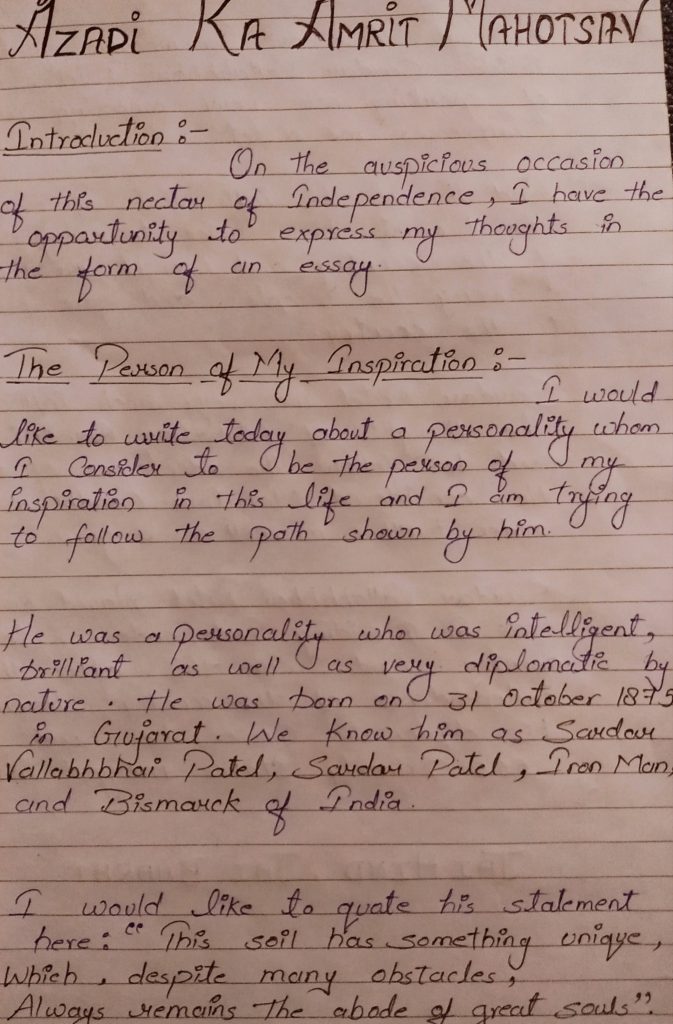 AZADI KA AMRIT MAHOTSAV
Introduction :-
On the auspicious occasion
of this nectar of Independence, I have the
opportunity to express my thoughts in
the form of an essay.
The Person of My Inspiration :-
I would
like to write today about a personality whom
I Consider to be the person of my
inspiration in this life and I am trying
to follow the path shown by him.
He was a personality who was intelligent,
brilliant as well as very diplomatic by
nature. He was born on 31 October 1875
in Gujarat. We Know him as Sardar
Vallabhbhai Patel, Sardar Patel, Iron Man,
and Bismarck of India.
I would like to quate his statement
here: "This soil has something unique,
Which, despite many obstacles,
Always remains the abode of great souls".